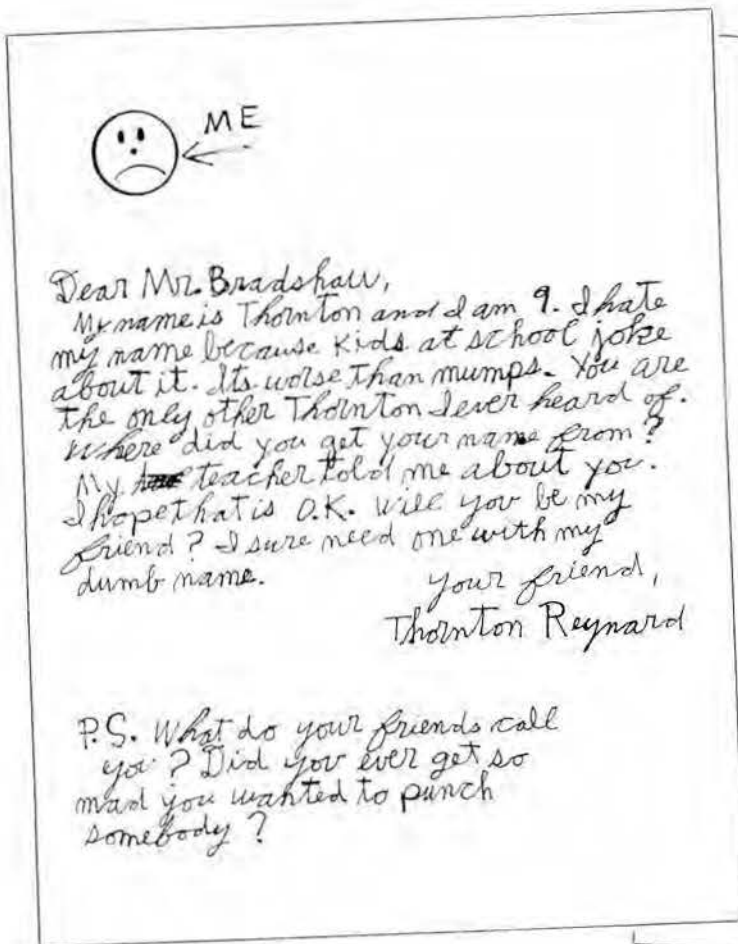 ME
Dear Mr. Bradshaw,
My name is Thornton and I am 9. I hate
my name because kids at school joke
about it. Its worse than mumps. You are
the only other Thornton I ever heard of.
Where did you get your name from?
My teacher told me about you.
I hope that is O.K. Will you be my
friend? I sure need one with my
dumb name.
your friend,
Thornton Reynard
P.S. What do your friends call
you? Did you ever get so
mad you wanted to punch
somebody?